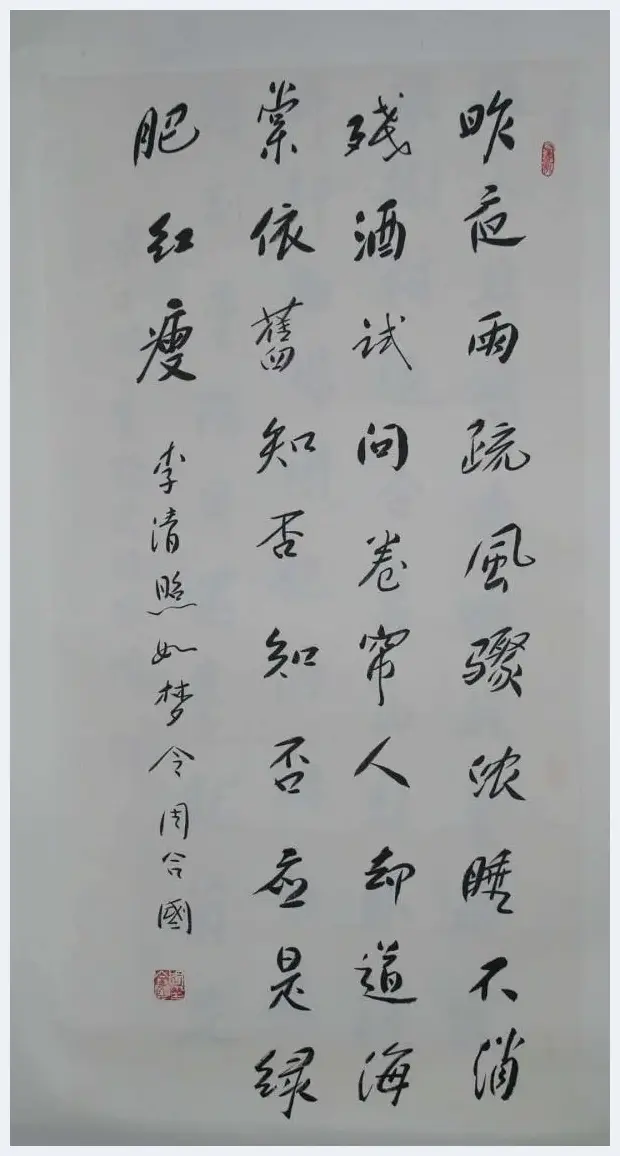 昨夜雨疏風骤浓睡不消
残酒试问卷帘人却道海
棠依舊知否知否应是绿
肥红瘦
李清照如梦令周合國